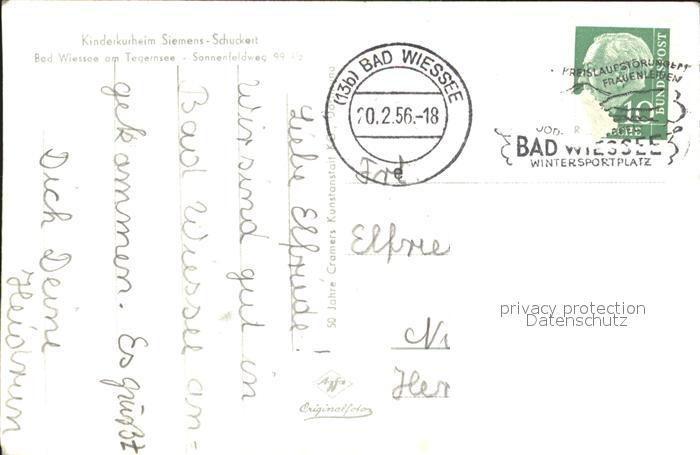 Kinderkurheim Siemens-Schuckert
Bad Wiessee am Tegernsee - Sonnenfeldweg 99
Liebe Elfriede!
Wir sind gut in
Bad Wiessee an-
gekommen. Es grüßt
Dich Deine
Heidrun
50 Jahre Cramers Kunstanstalt
(13b) BAD WIESSEE
20.2.56.-18
e
KREISLAUFSTÖRUNGEN
FRAUENLEIDEN
BAD WIESSEE
WINTERSPORTPLATZ
10
BUNDESPOST
Elfrie
Ni
Her
Agfa
Originalfoto
privacy protection
Datenschutz